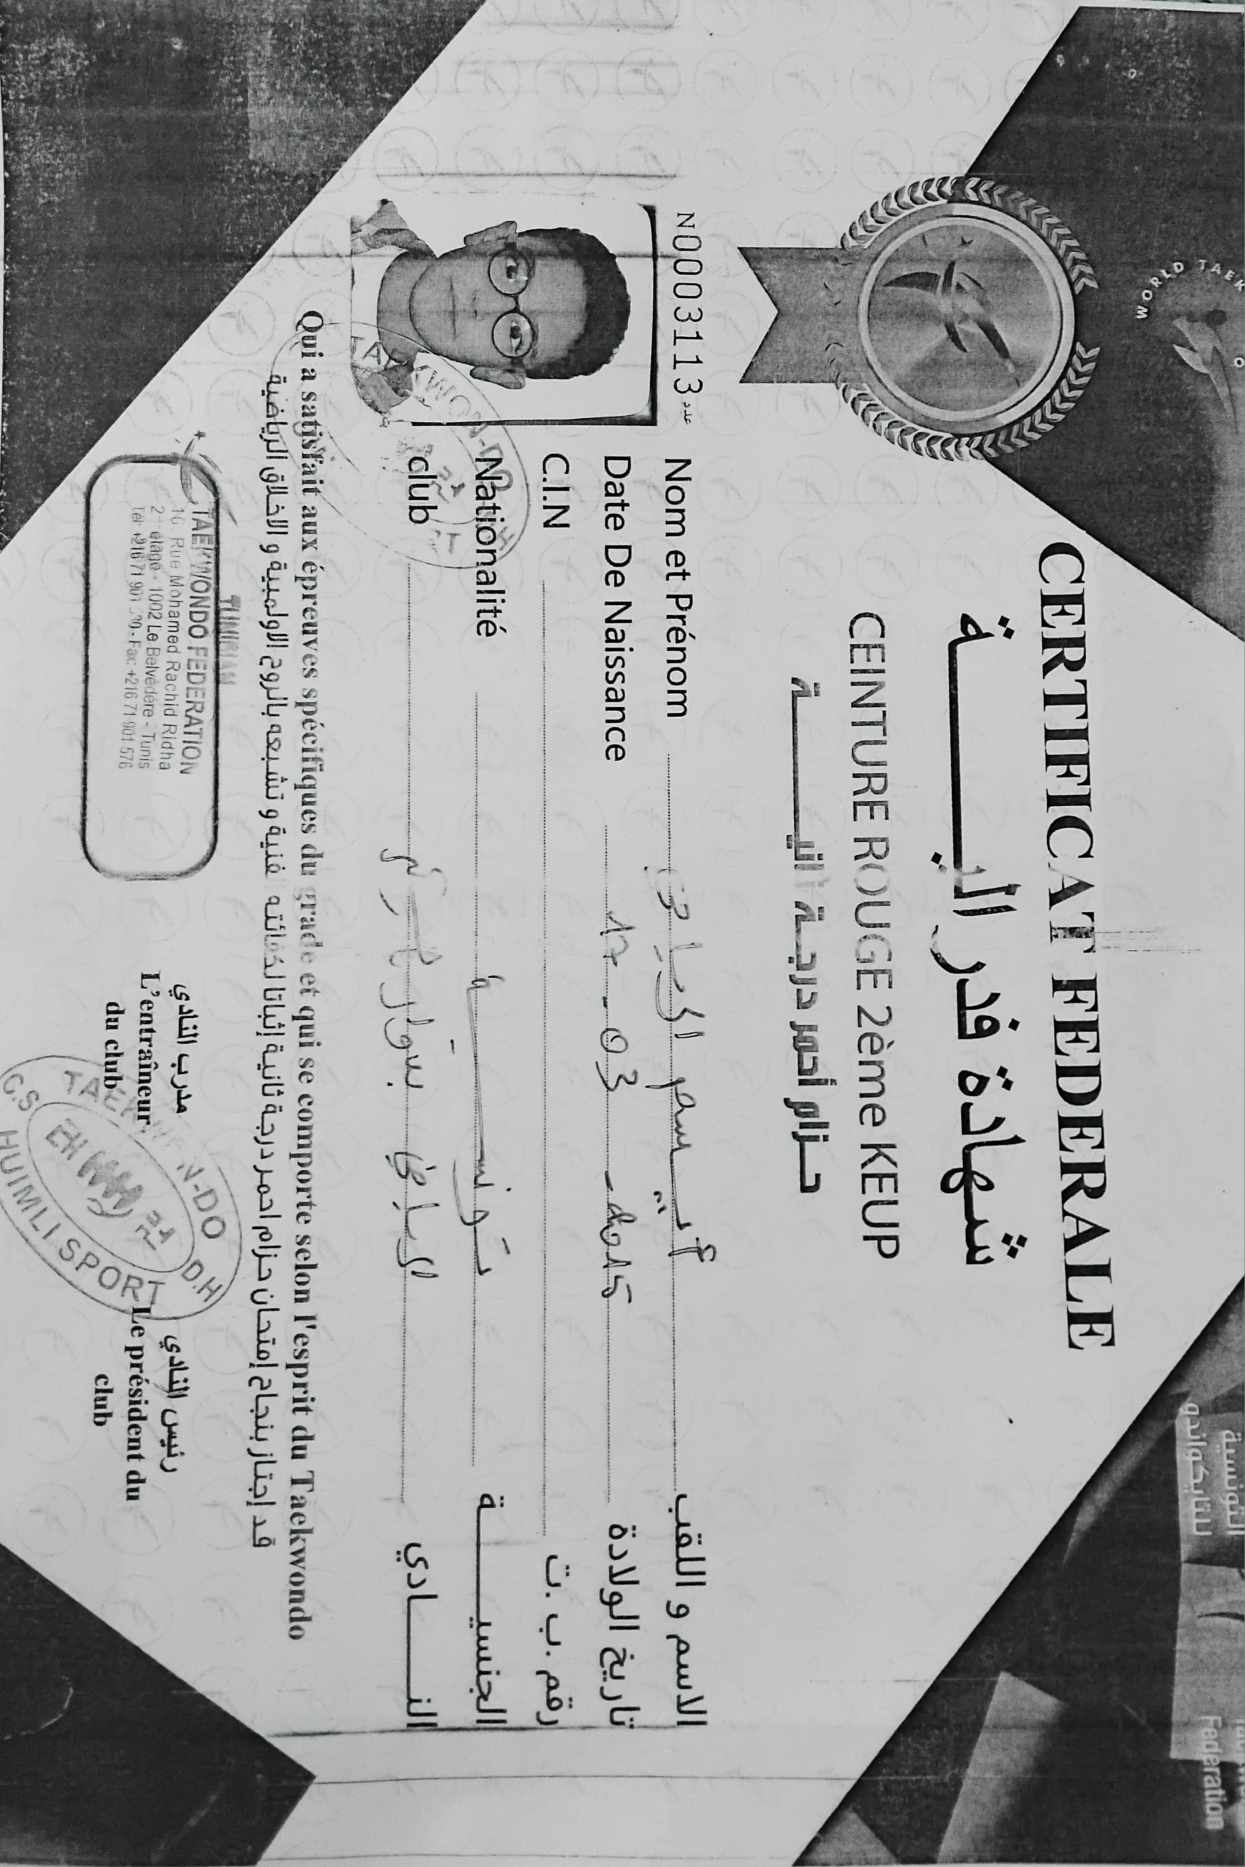 WORLD TAEK
التونسية
للتايكواندو
Federation
CERTIFICAT FEDERALE
شهادة فدراليـــــة
CEINTURE ROUGE 2ème KEUP
حـزام أحمر درجـة ثانيـــــة
N0003113 عدد
Nom et Prénom أيـ الرياحي الاسم و اللقب
Date De Naissance 17-03-2015 تاريخ الولادة
C.I.N رقم .ب .ت
Nationalité تونسية الجنسيـــــة
club الرياضي النـــــادي
Qui a satisfait aux épreuves spécifiques du grade et qui se comporte selon l'esprit du Taekwondo
قد إجتاز بنجاح إمتحان حزام احمر درجة ثانية إثباتا لكفائته الفنية و تشبعه بالروح الاولمبية و الاخلاق الرياضية
TUNISIAN
TAEKWONDO FEDERATION
16 Rue Mohamed Rachid Ridha
2 étage - 1002 Le Belvédère - Tunis
Tél: +216 71 901 - Fax: +216 71 901 576
مدرب النادي
L'entraîneur
du club
رئيس النادي
Le président du
club
TAEKWON-DO D.H
C.S HUIMLI SPORT